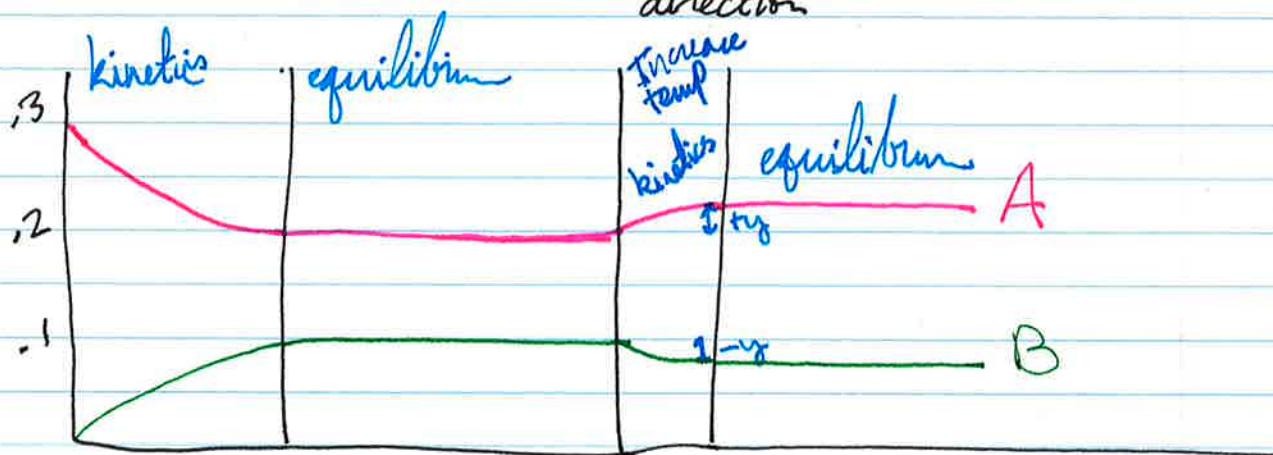 direction
kinetics
equilibrium
Increase
temp
kinetics
equilibrium
.3
.2
.1
+y
-y
A
B